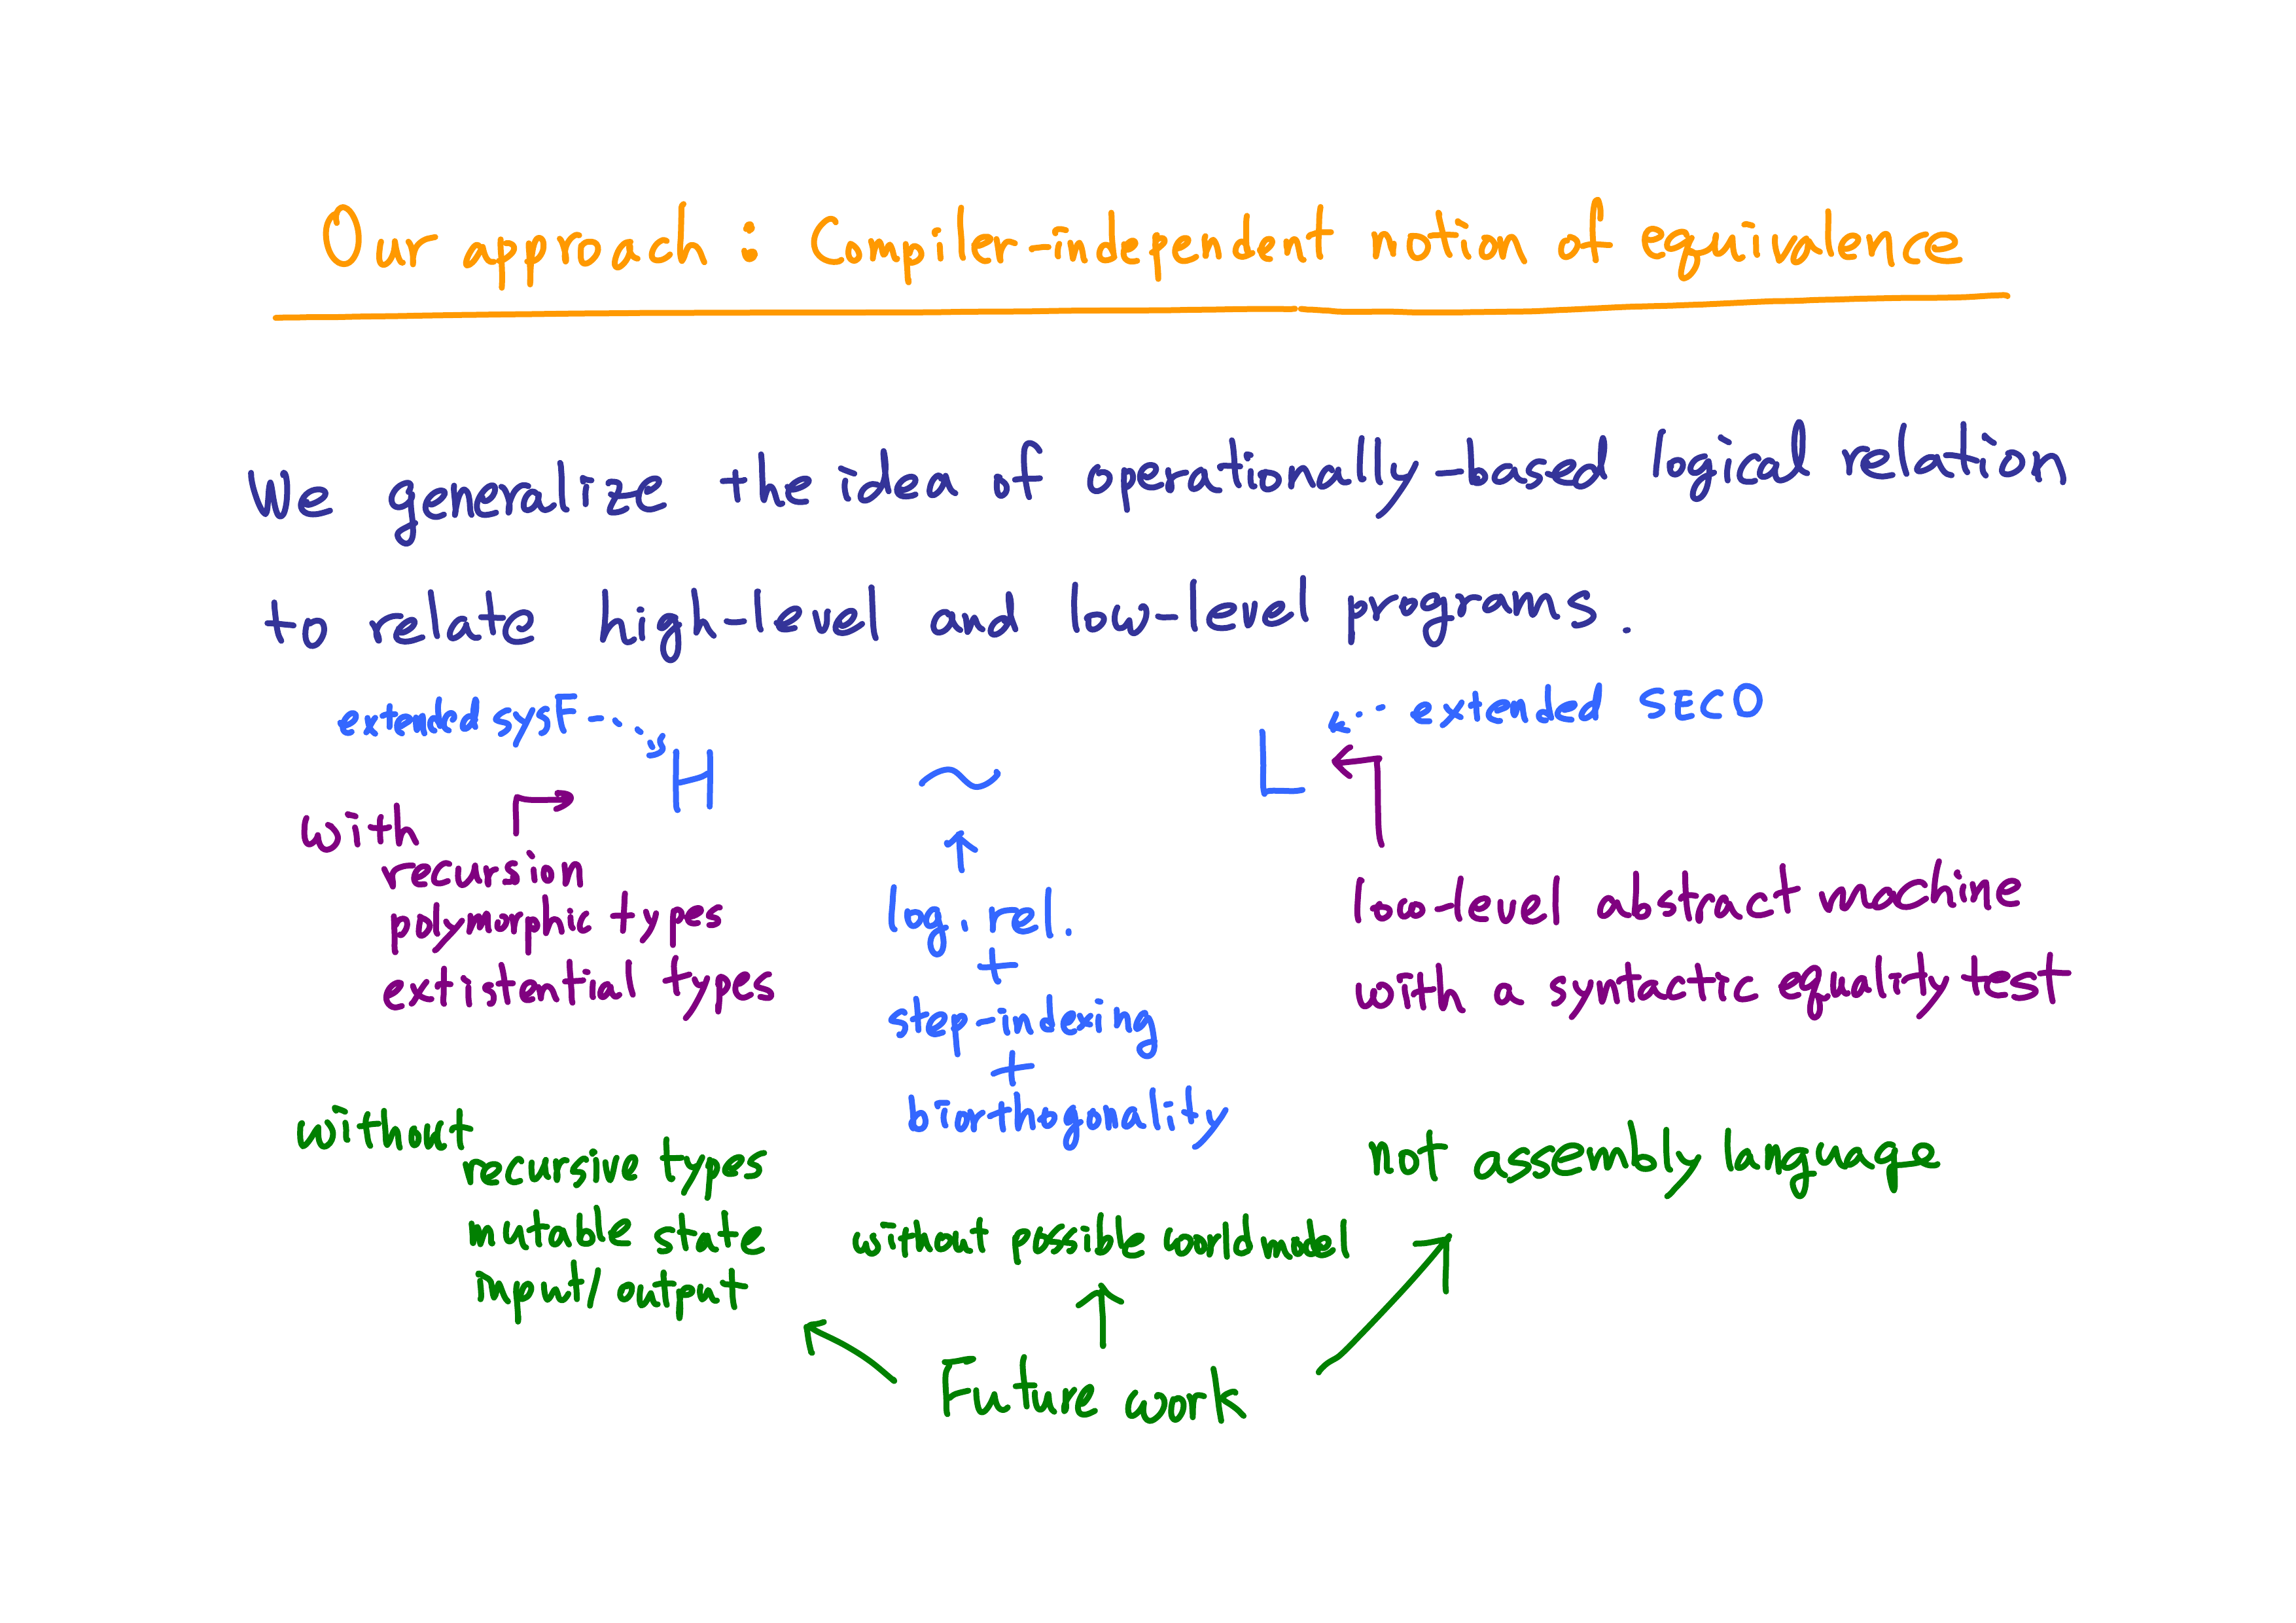 Our approach : Compiler-independent notion of equivalence
We generalize the idea of operationally-based logical relation
to relate high-level and low-level programs.
extended sysF
extended SECD
H ~ L
with
recursion
polymorphic types
extistential types
log. rel.
+
step-indexing
+
biorthogonality
low-level abstract machine
with a syntactic equality test
without
recursive types
mutable state
input/output
without possible world model
not assembly language
Future work